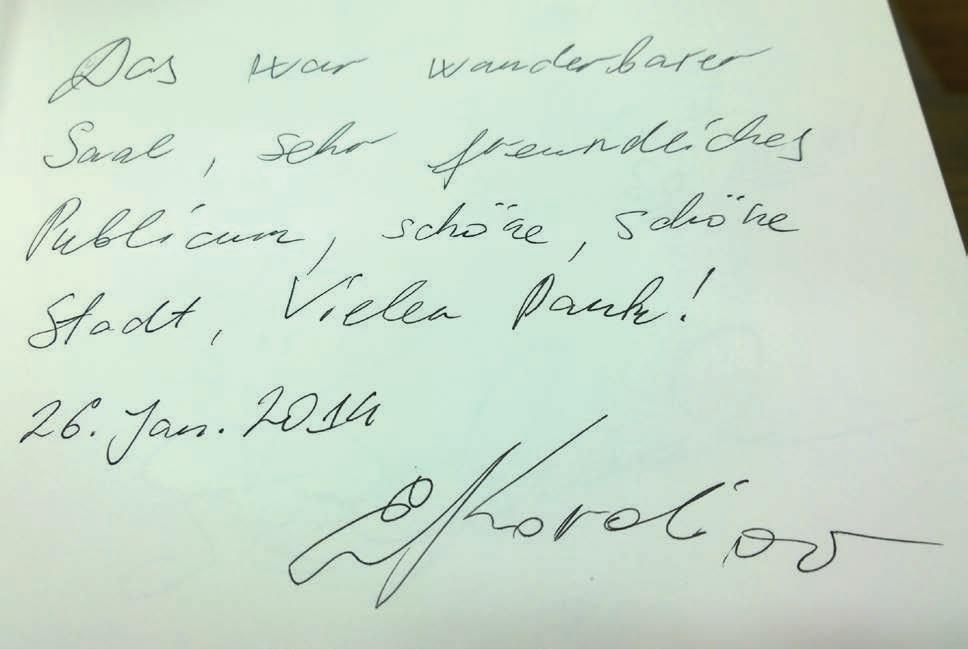 Das war wunderbarer
Saal, sehr freundliches
Publicum, schöne, schöne
Stadt, Vielen Dank!
26. Jan. 2014